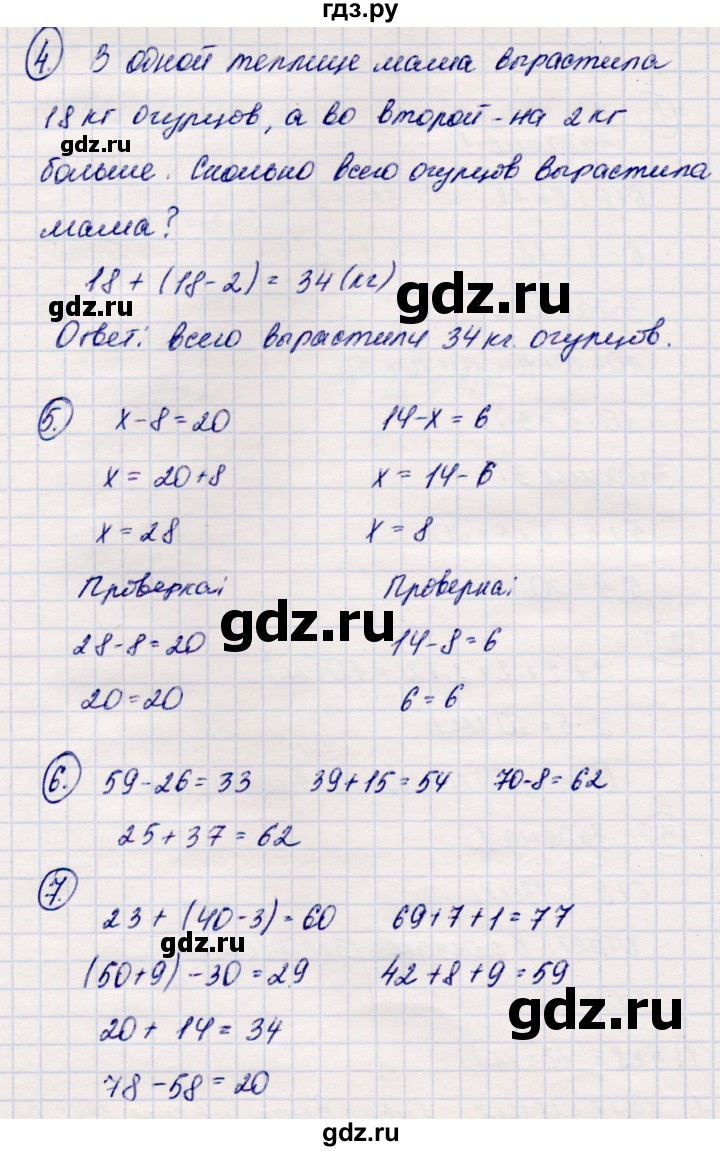 гдз.ру
4. В одной теплице мама вырастила
18 кг огурцов, а во второй - на 2 кг
gdz.ru
больше. Сколько всего огурцов вырастила
мама?
18 + (18 - 2) = 34 (кг)
gdz.ru
gdz.ru
Ответ: всего вырастили 34 кг. огурцов.
5. x - 8 = 20 14 - x = 6
x = 20 + 8 x = 14 - 6
x = 28 x = 8
Проверка: Проверка:
gdz.ru
28 - 8 = 20 14 - 8 = 6
20 = 20 6 = 6
6. 59 - 26 = 33 39 + 15 = 54 70 - 8 = 62
25 + 37 = 62
7.
23 + (40 - 3) = 60 69 + 7 + 1 = 77
gdz.ru
(50 + 9) - 30 = 29 42 + 8 + 9 = 59
gdz.ru
20 + 14 = 34
78 - 58 = 20
gdz.ru